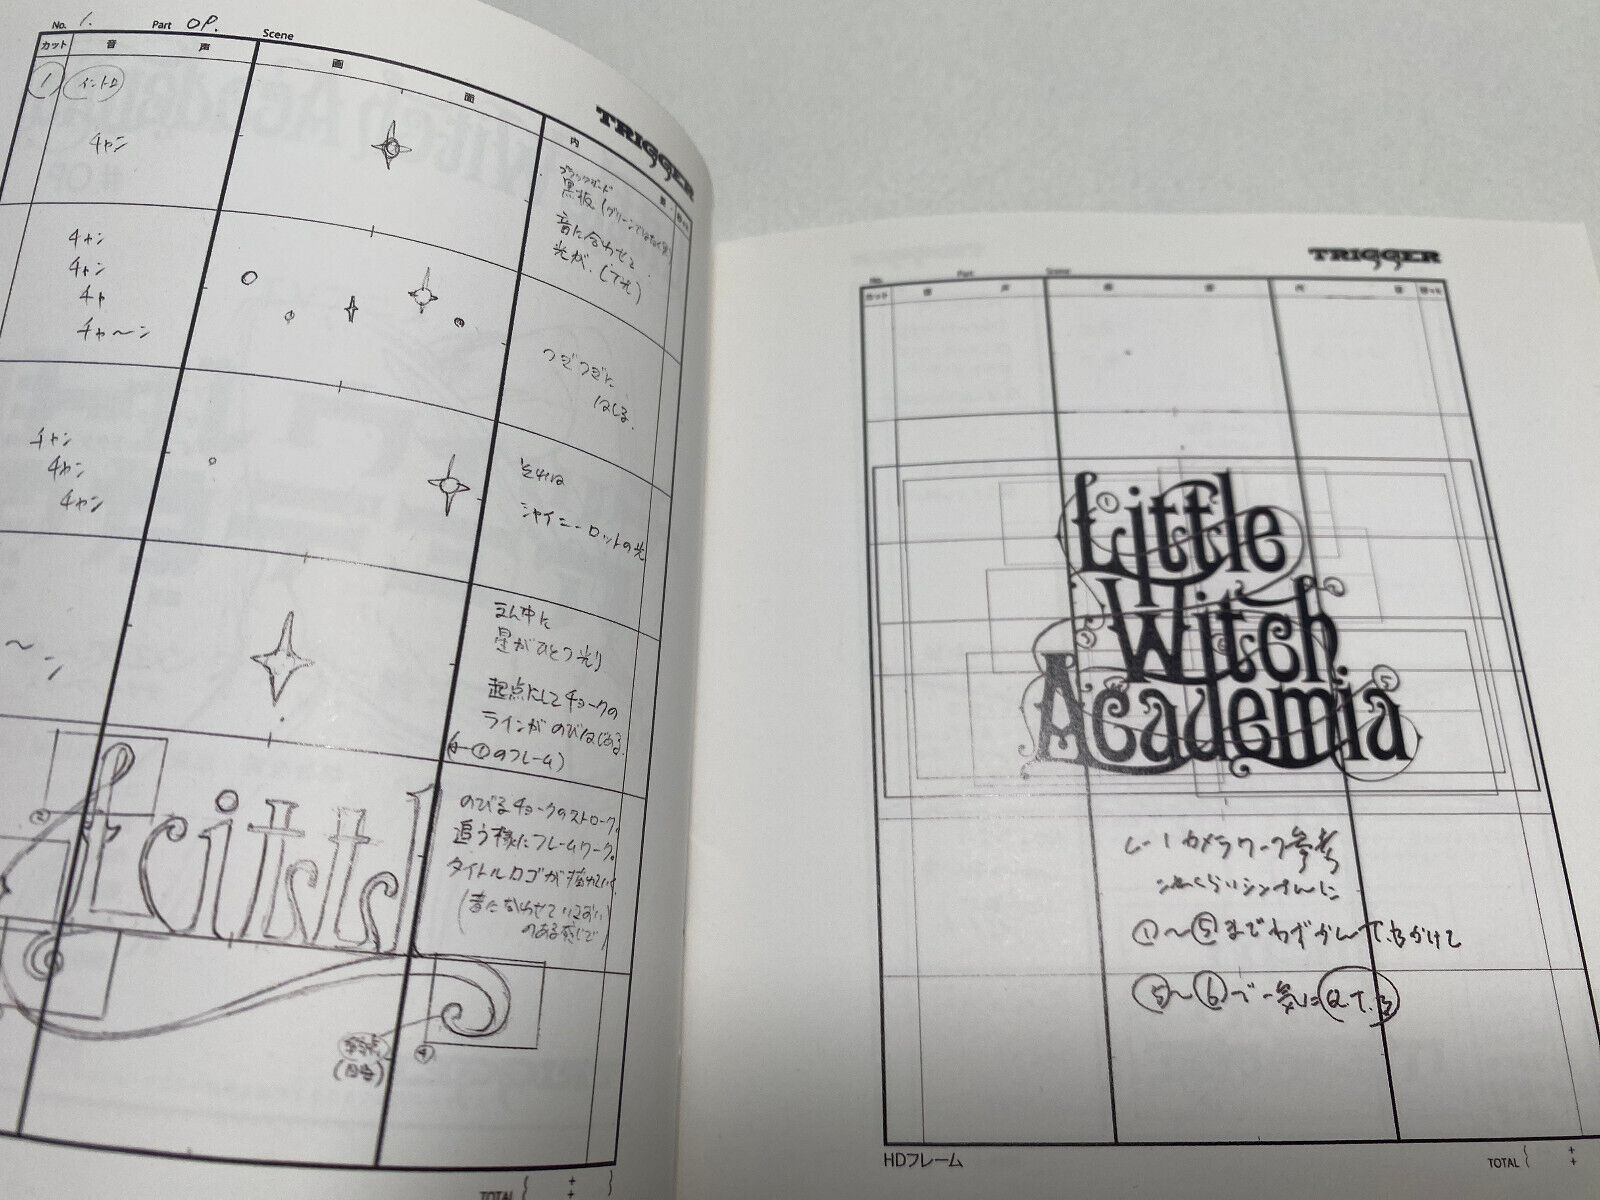 No. 1. Part OP. Scene
TRIGGER
カット 音 声 画 面 内
1 イントロ
チャン
ブラックボード
黒板(グリーンではなく黒)
音に合わせて
光が
チャン
チャン
チャ
チャ〜ン
つぎつぎに
はしる。
チャン
チャン
チャン
それは
シャイニーロットの光
〜ン
まん中に
星がひとつ光り
起点にしてチョークの
ラインがのびはじめる。
①のフレーム)
Littl
のびるチョークのストローク。
追う様にフレームワーク。
タイトルロゴが描かれていく
(音に合わせていきおい
のある感じで)
②
④
TOTAL ( + + )
TRIGGER
No. Part Scene
カット 音 声 画 面 内 容
Little
Witch
Academia
①
⑤
C-1カメラワーク参考
①〜⑤までわずかにT.Bかけて
⑤〜⑥で一気にQT.B
HDフレーム
TOTAL ( + +